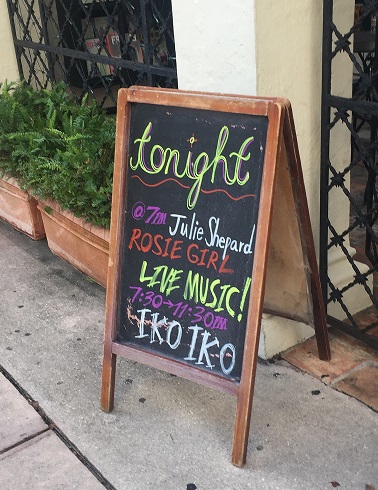 tonight
@ 7PM Julie Shepard
ROSIE GIRL
LIVE MUSIC!
7:30→11:30PM
IKO IKO